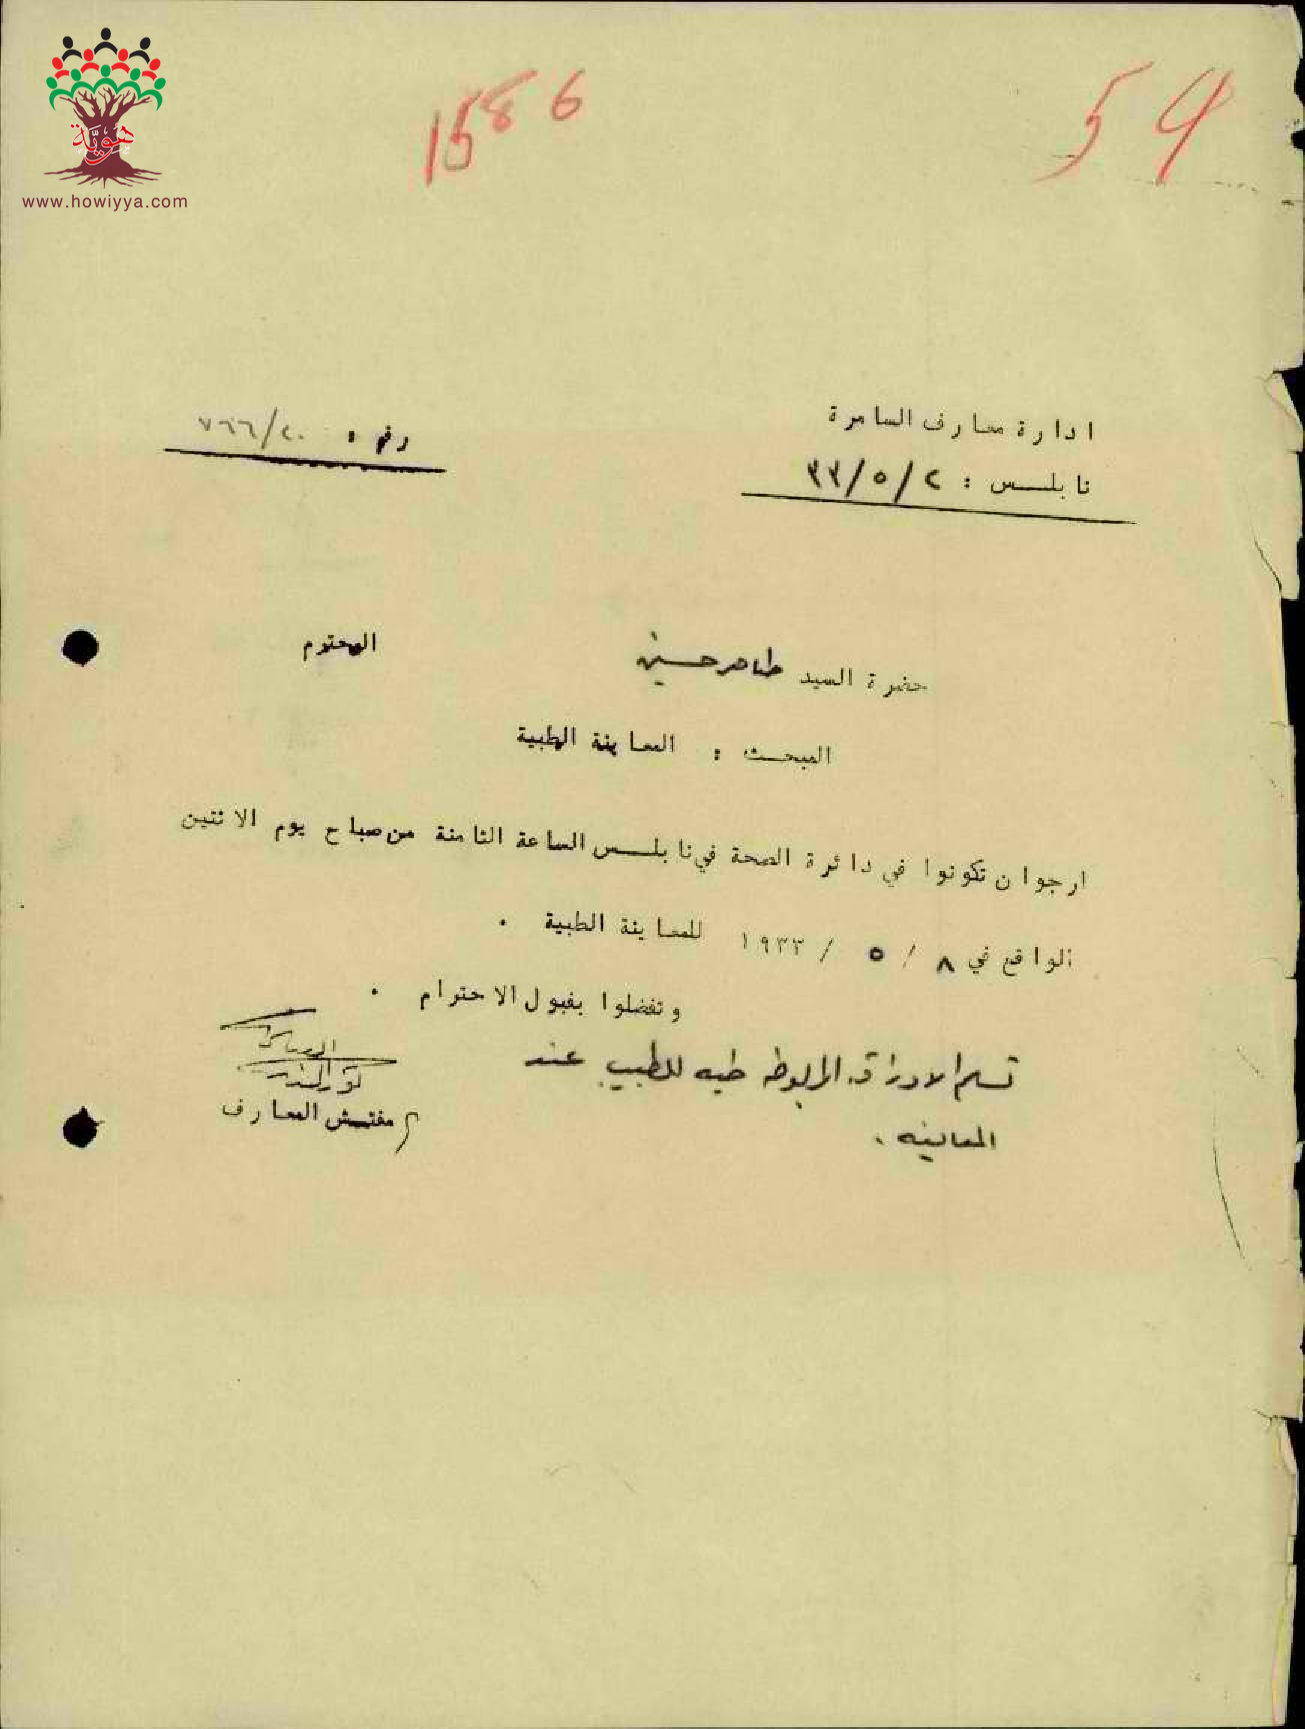 هوية
www.howiyya.com
1586
54
ادارة معارف السامرة
نابلس : ٢ / ٥ / ٣٣
رقم : ٧٦٦/٢٠
حضرة السيد طاهر حسين المحترم
المبحث : المعاينة الطبية
ارجوان تكونوا في دائرة الصحة في نابلس الساعة الثامنة من صباح يوم الاثنين
الواقع في ٨ / ٥ / ١٩٣٣ للمعاينة الطبية .
وتفضلوا بقبول الاحترام .
تسلم الاوراق المربوطة طيه للطبيب عند
المعاينه .
مفتش المعارف